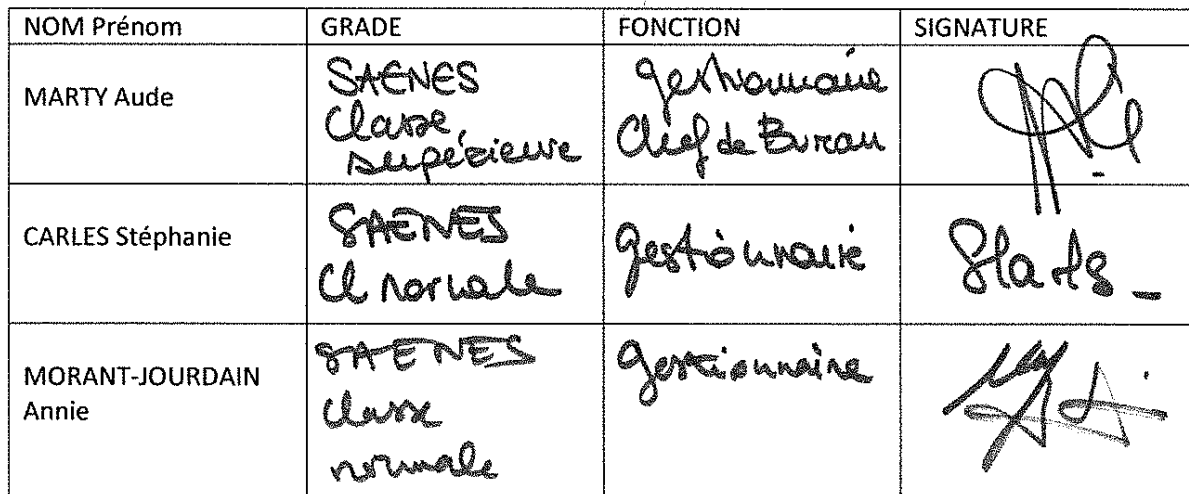 NOM Prénom GRADE FONCTION SIGNATURE
MARTY Aude SAENES Classe supérieure gestionnaire Chef de Bureau
CARLES Stéphanie SAENES Cl normale gestionnaire
MORANT-JOURDAIN Annie SAENES classe normale gestionnaire